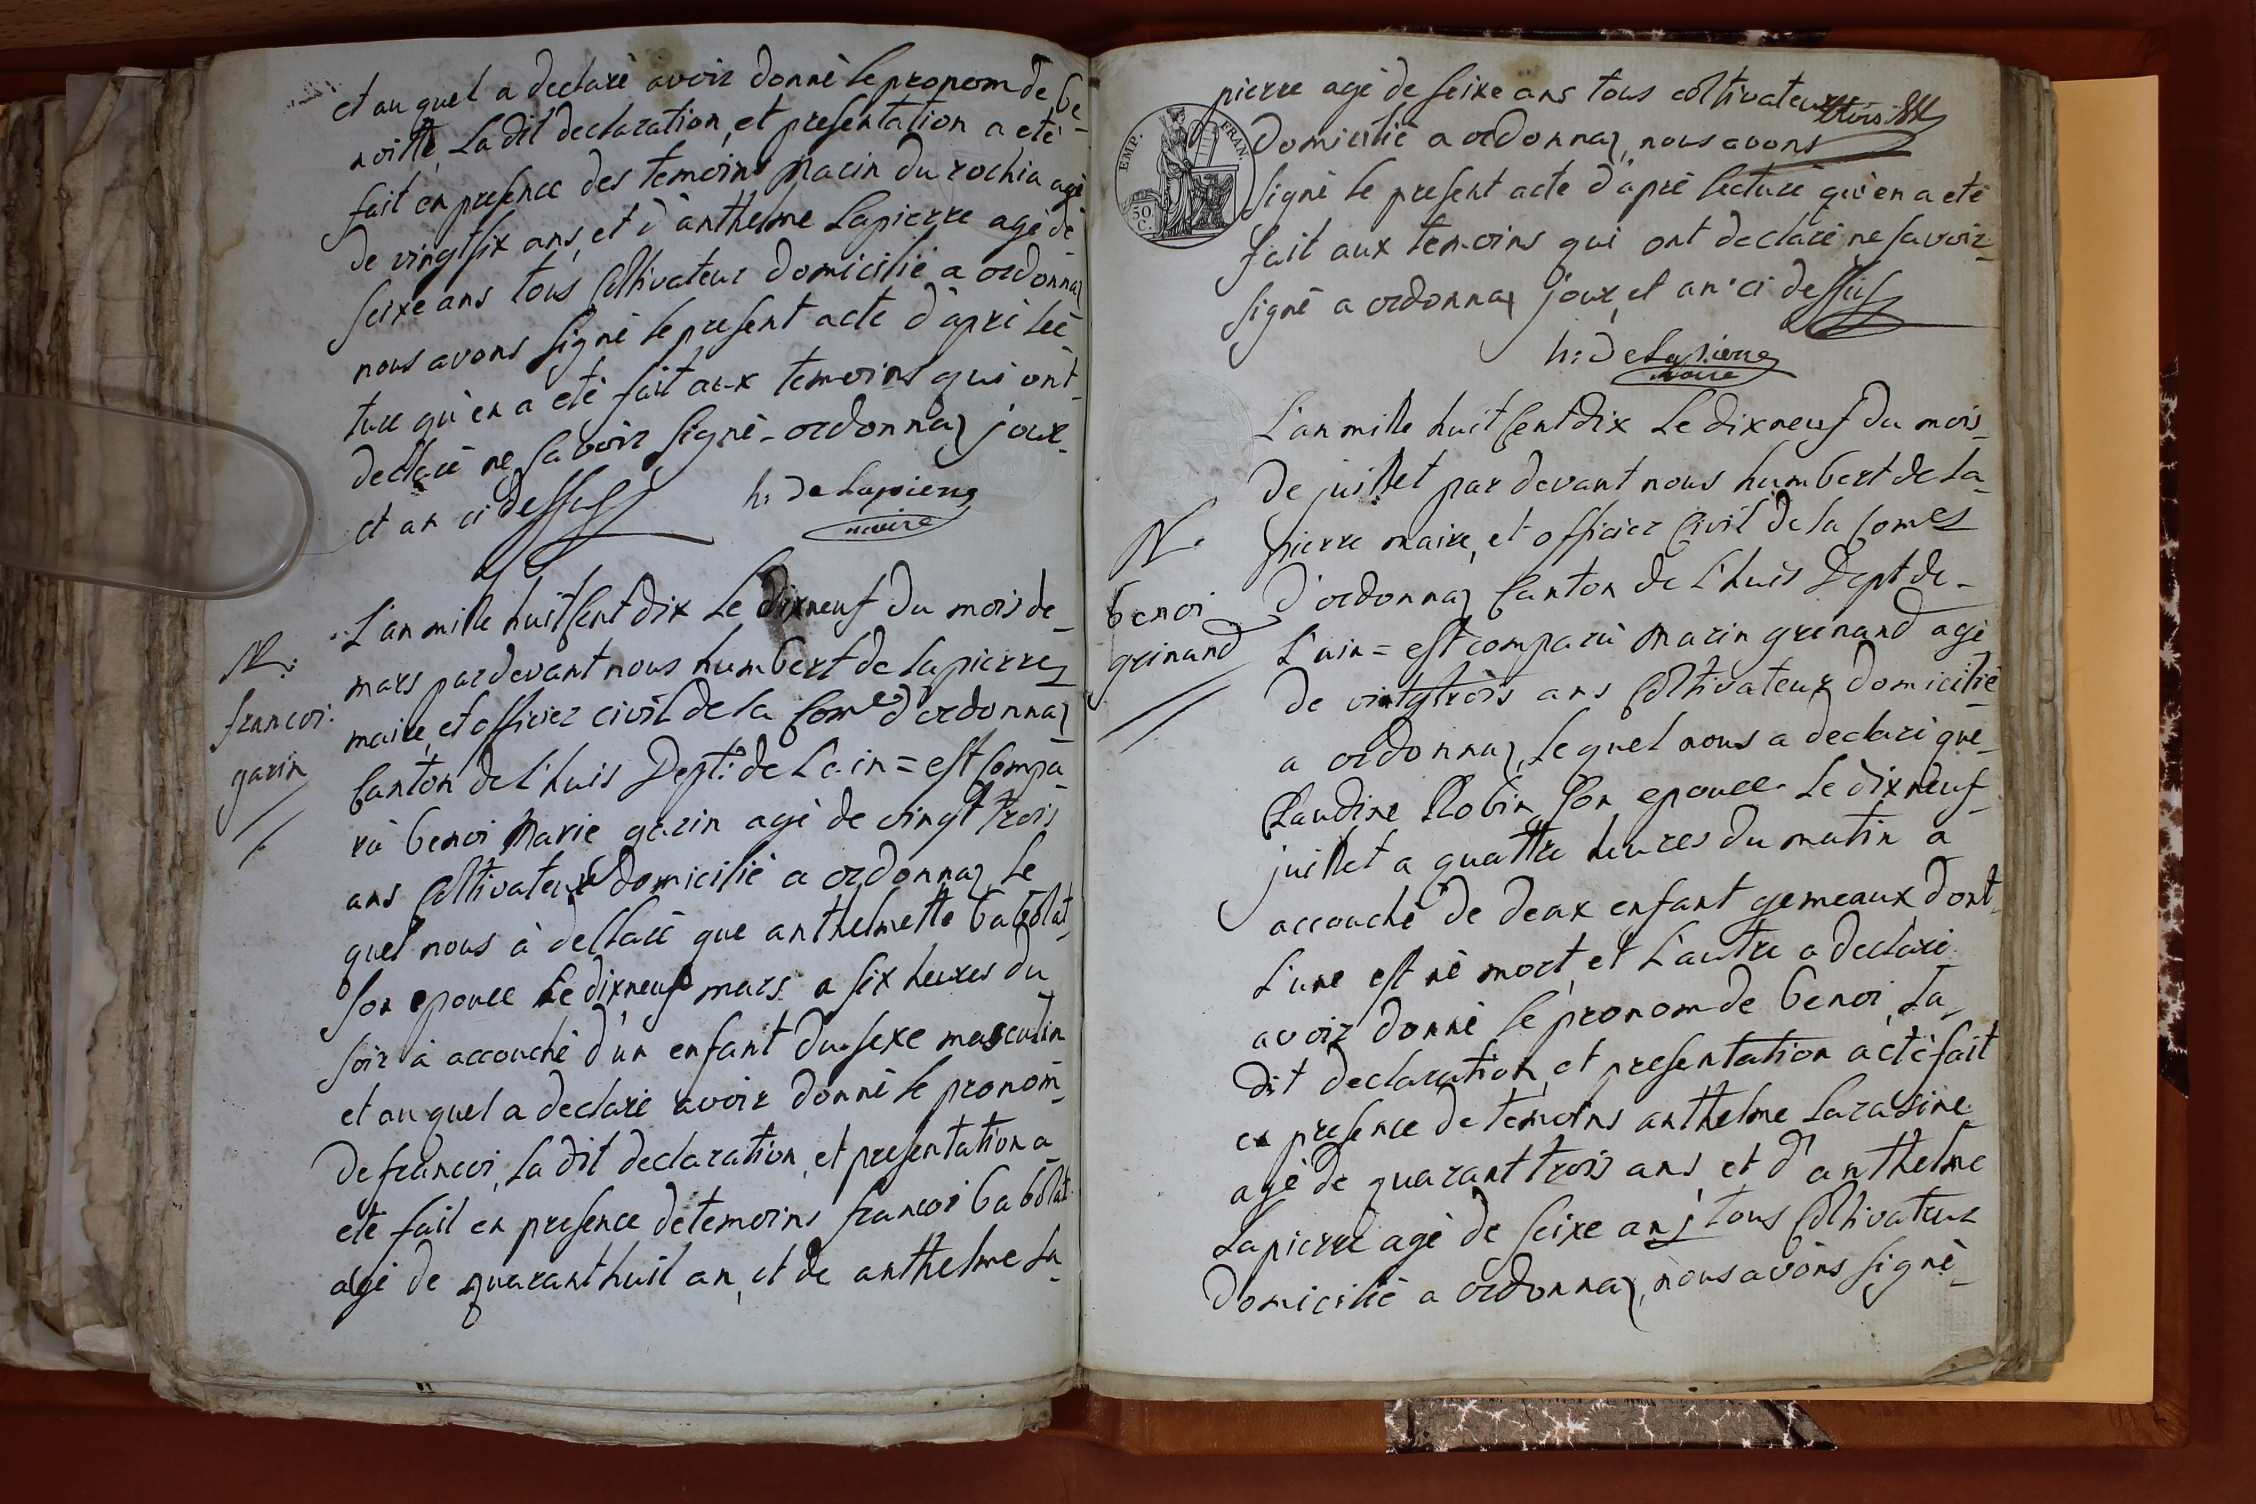 et auquel a declaré avoir donné le pronom de be-
noitte, La dit declaration, et presentation a eté
fait en presence des temoins marin du rochia agé
de vingt six ans, et d'anthelme Lapierre agé de
seixe ans tous Coltivateur domicilié a ordonnaz
nous avons signé le present acte d'apré lec-
ture qu'en a eté fait aux temoins qui ont
declaré ne savoir signé - ordonnaz jour
et an ci dessus
h: de Lapierre
maire
N:
francoi
garin
L'an mille huit Cent dix Le dixneuf du mois de
mars pardevant nous humbert de Lapierre
maire, et officier civil de la Come d'ordonnaz
Canton de L'huis Dept: de L'ain = est Compa-
rú benoi Marie garin agé de vingt trois
ans Coltivateur domicilié a ordonnaz Le
quel nous à declaré que anthelmette babolat
son epouce Le dixneuf mars a six heures du
soir à accouché d'un enfant du sexe masculin
et auquel a declaré avoir donné le pronom
de francoi, La dit declaration, et presentation a
eté fait en presence de temoins francoi babolat
agé de quarant huit an, et de anthelme La-
pierre agé de seixe ans tous coltivateur
domicilié a ordonnaz, nous avons
signé le present acte d'apré lecture qu'en a eté
fait aux temoins qui ont declaré ne savoir
signé a ordonnaz jour, et an ci dessus
EMP. FRAN.
50.
C.
h: de Lapierre
maire
N.
benoi
grinand
L'an mille huit Cent dix Le dixneuf du mois
de juillet par devant nous humbert de La-
pierre maire, et officier Civil de la Come
d'ordonnaz Canton de L'huis Dept de
L'ain = est comparú marin grenand agé
de vintgtrois ans Coltivateur domicilié
a ordonnaz, Lequel nous a declaré que
Claudine Robin son epouce Le dixneuf
juillet a quattre heures du matin a
accouché de deux enfant gemeaux dont
L'une est né mort, et L'autre a declaré
avoir donné le pronom de benoi, La
dit declaration, et presentation a eté fait
en presence de temoins anthelme Larasine
agé de quarant trois ans, et d'anthelme
Lapierre agé de seixe ans, tous Coltivateur
domicilié a ordonnaz, nous avons signé